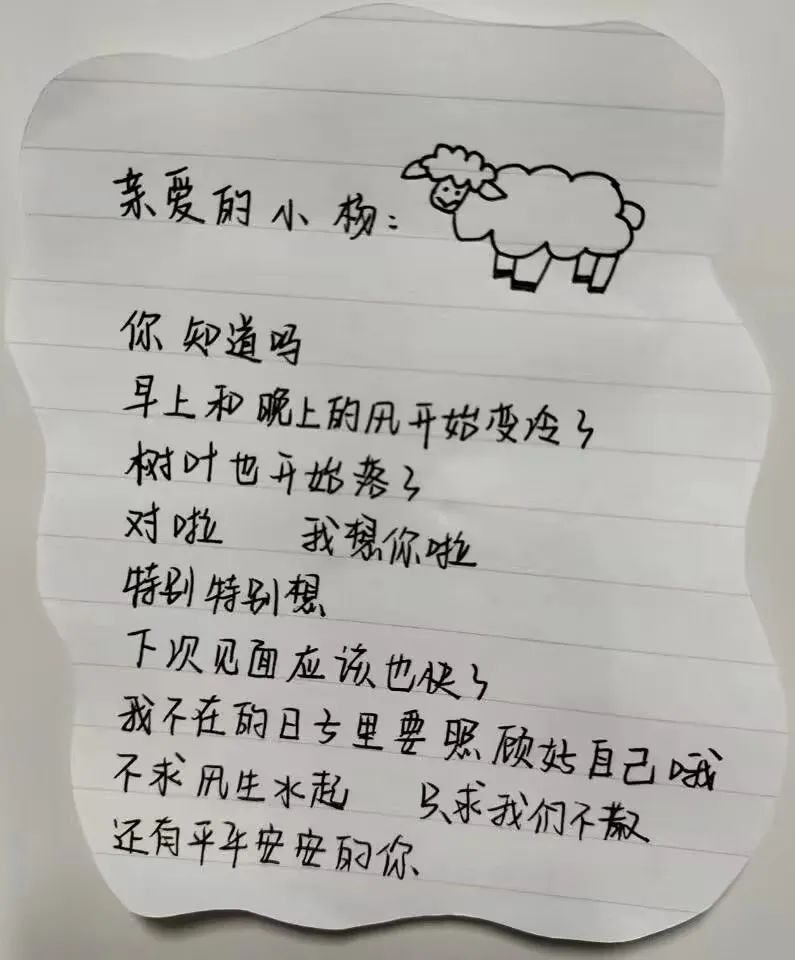 亲爱的小杨：
你知道吗
早上和晚上的风开始变冷了
树叶也开始落了
对啦 我想你啦
特别特别想
下次见面应该也快了
我不在的日子里要照顾好自己哦
不求风生水起 只求我们不散
还有平平安安的你